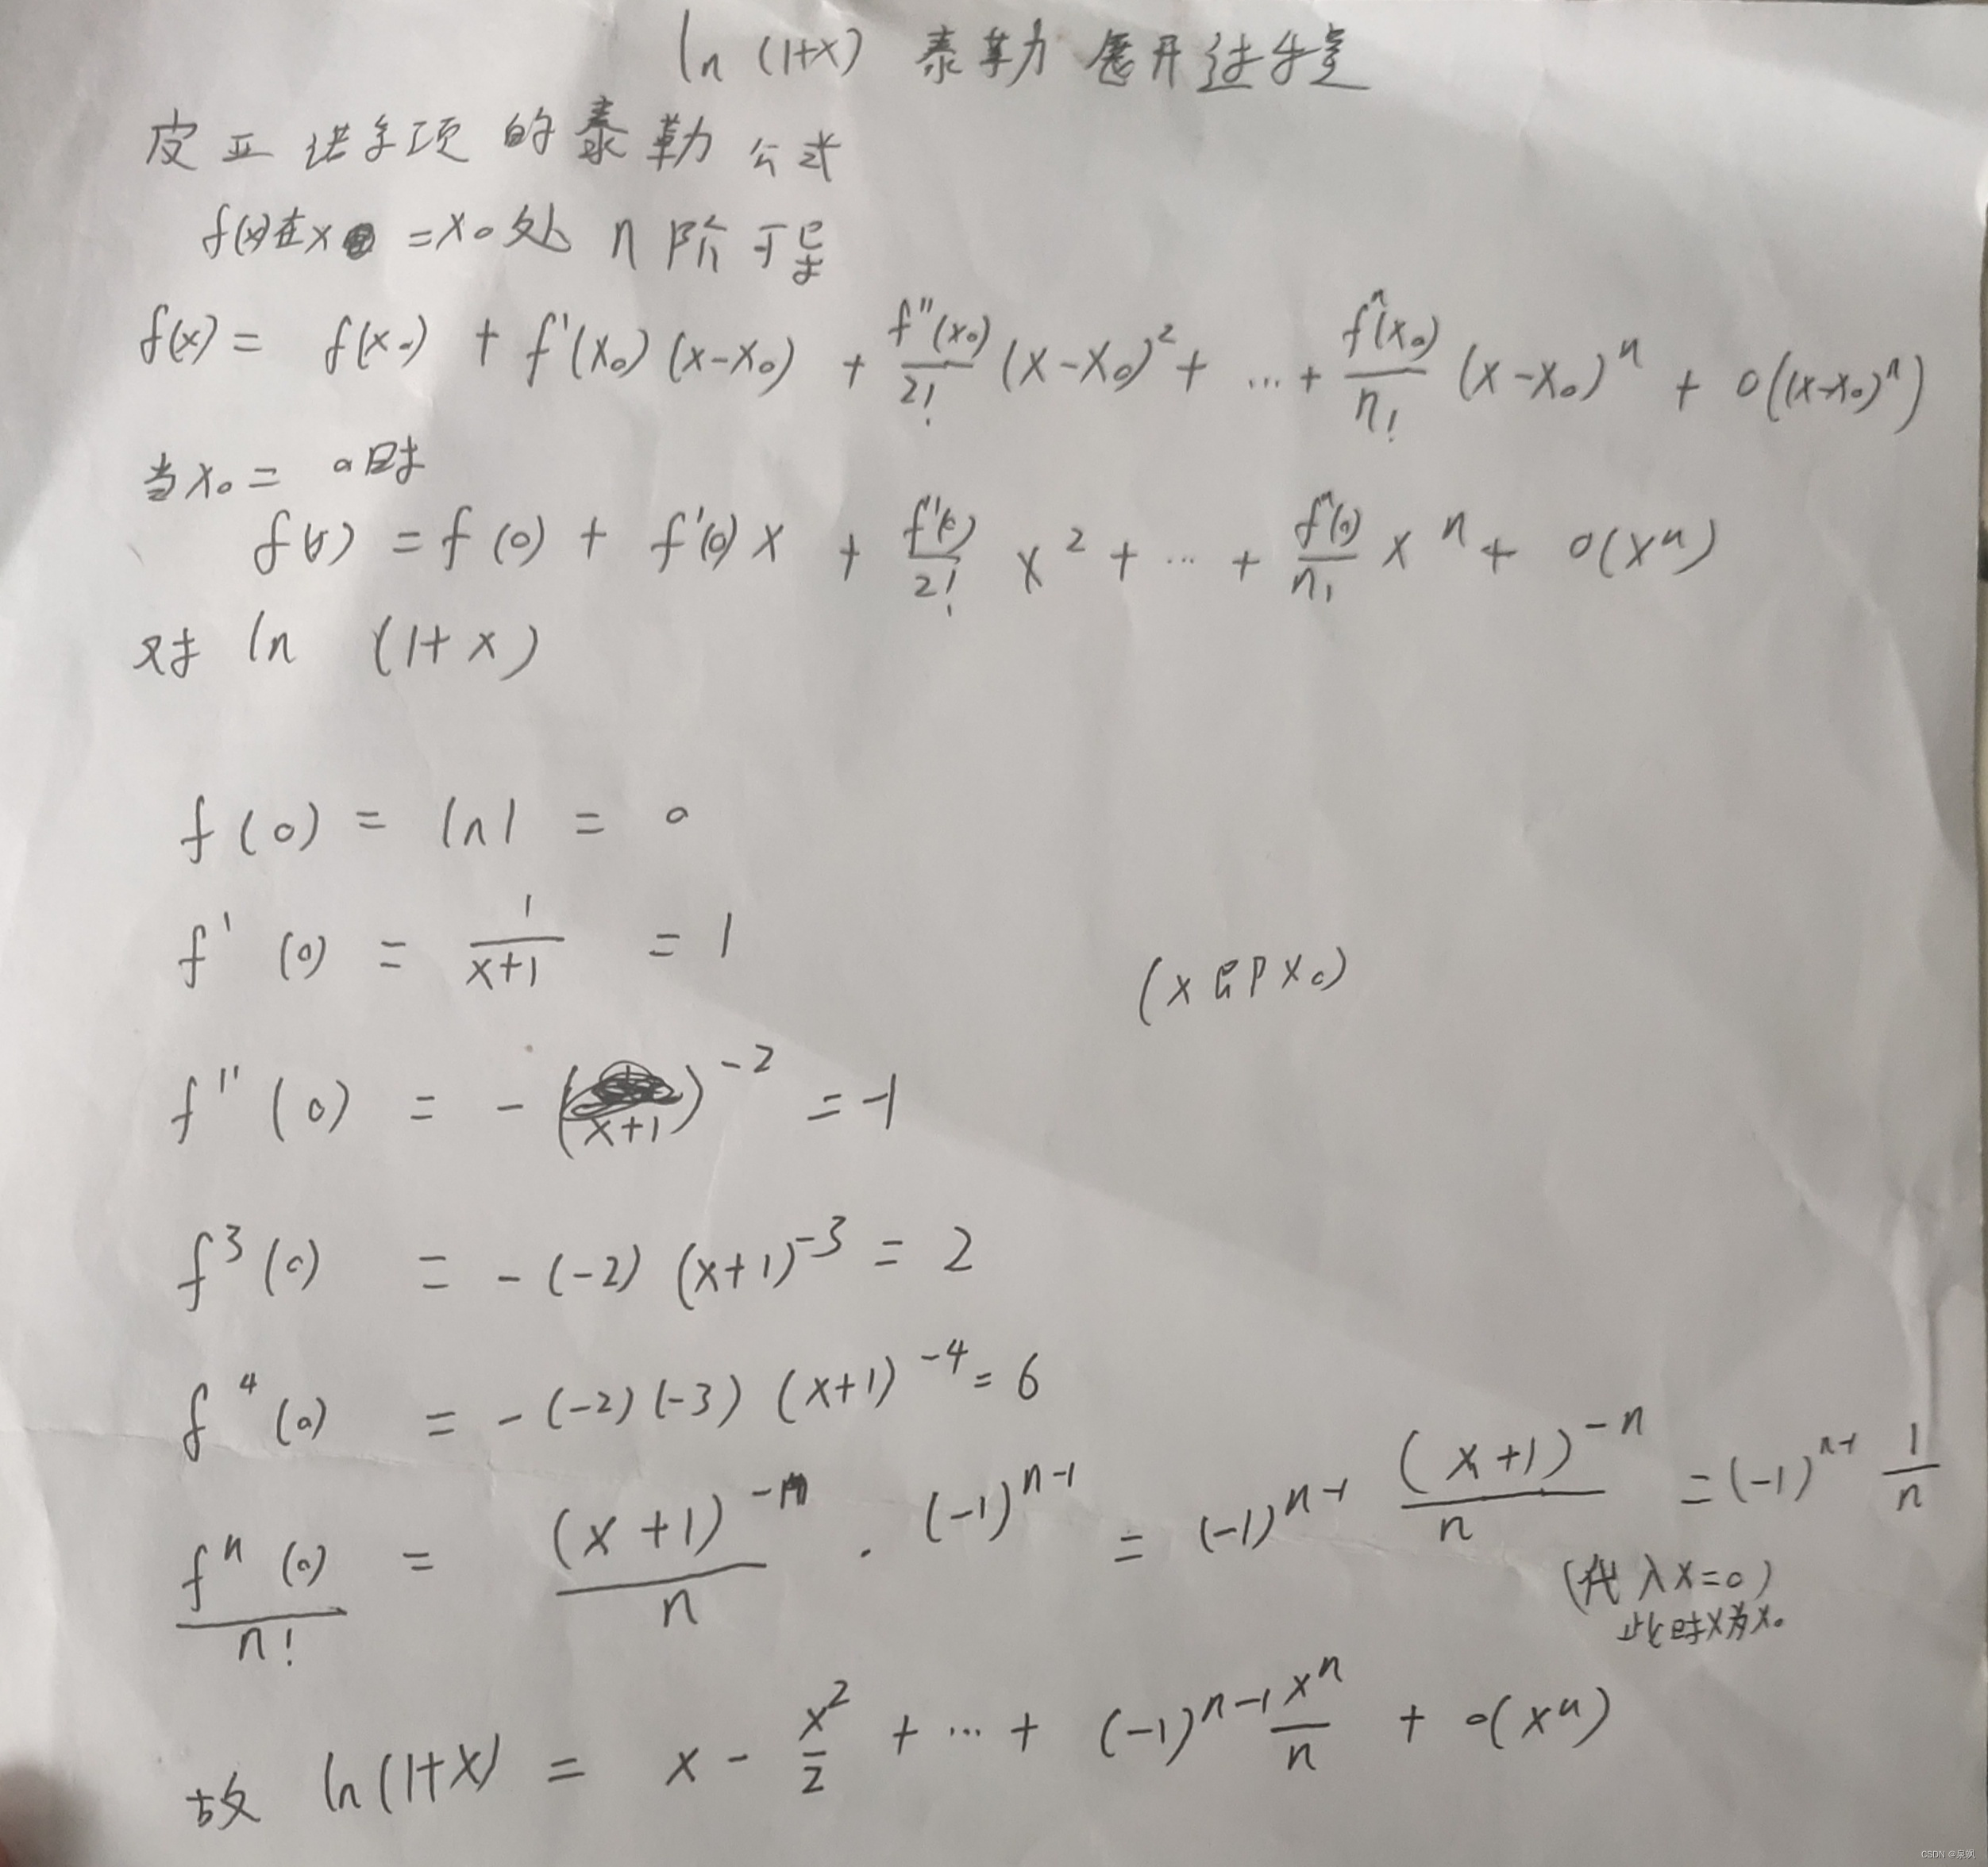 ln (1+x) 泰勒展开过程
皮亚诺余项的泰勒公式
f(x)在x=x₀处 n阶可导
f(x) = f(x₀) + f'(x₀)(x-x₀) + f''(x₀)/2! (x-x₀)² + … + fⁿ(x₀)/n! (x-x₀)ⁿ + o((x-x₀)ⁿ)
当x₀= 0时
f(x) = f(0) + f'(0)x + f''(0)/2! x² + … + fⁿ(0)/n! xⁿ + o(xⁿ)
对 ln (1+x)
f(0) = ln1 = 0
f'(0) = 1/(x+1) = 1
(x即x₀)
f''(0) = -(x+1)⁻² = -1
f³(0) = -(-2)(x+1)⁻³ = 2
f⁴(0) = -(-2)(-3)(x+1)⁻⁴ = 6
fⁿ(0)/n! = (x+1)⁻ⁿ/n · (-1)ⁿ⁻¹ = (-1)ⁿ⁻¹ (x+1)⁻ⁿ/n = (-1)ⁿ⁻¹ 1/n
(代入x=0)
此时x为x₀
故 ln(1+x) = x - x²/2 + … + (-1)ⁿ⁻¹ xⁿ/n + o(xⁿ)
CSDN @泉飒